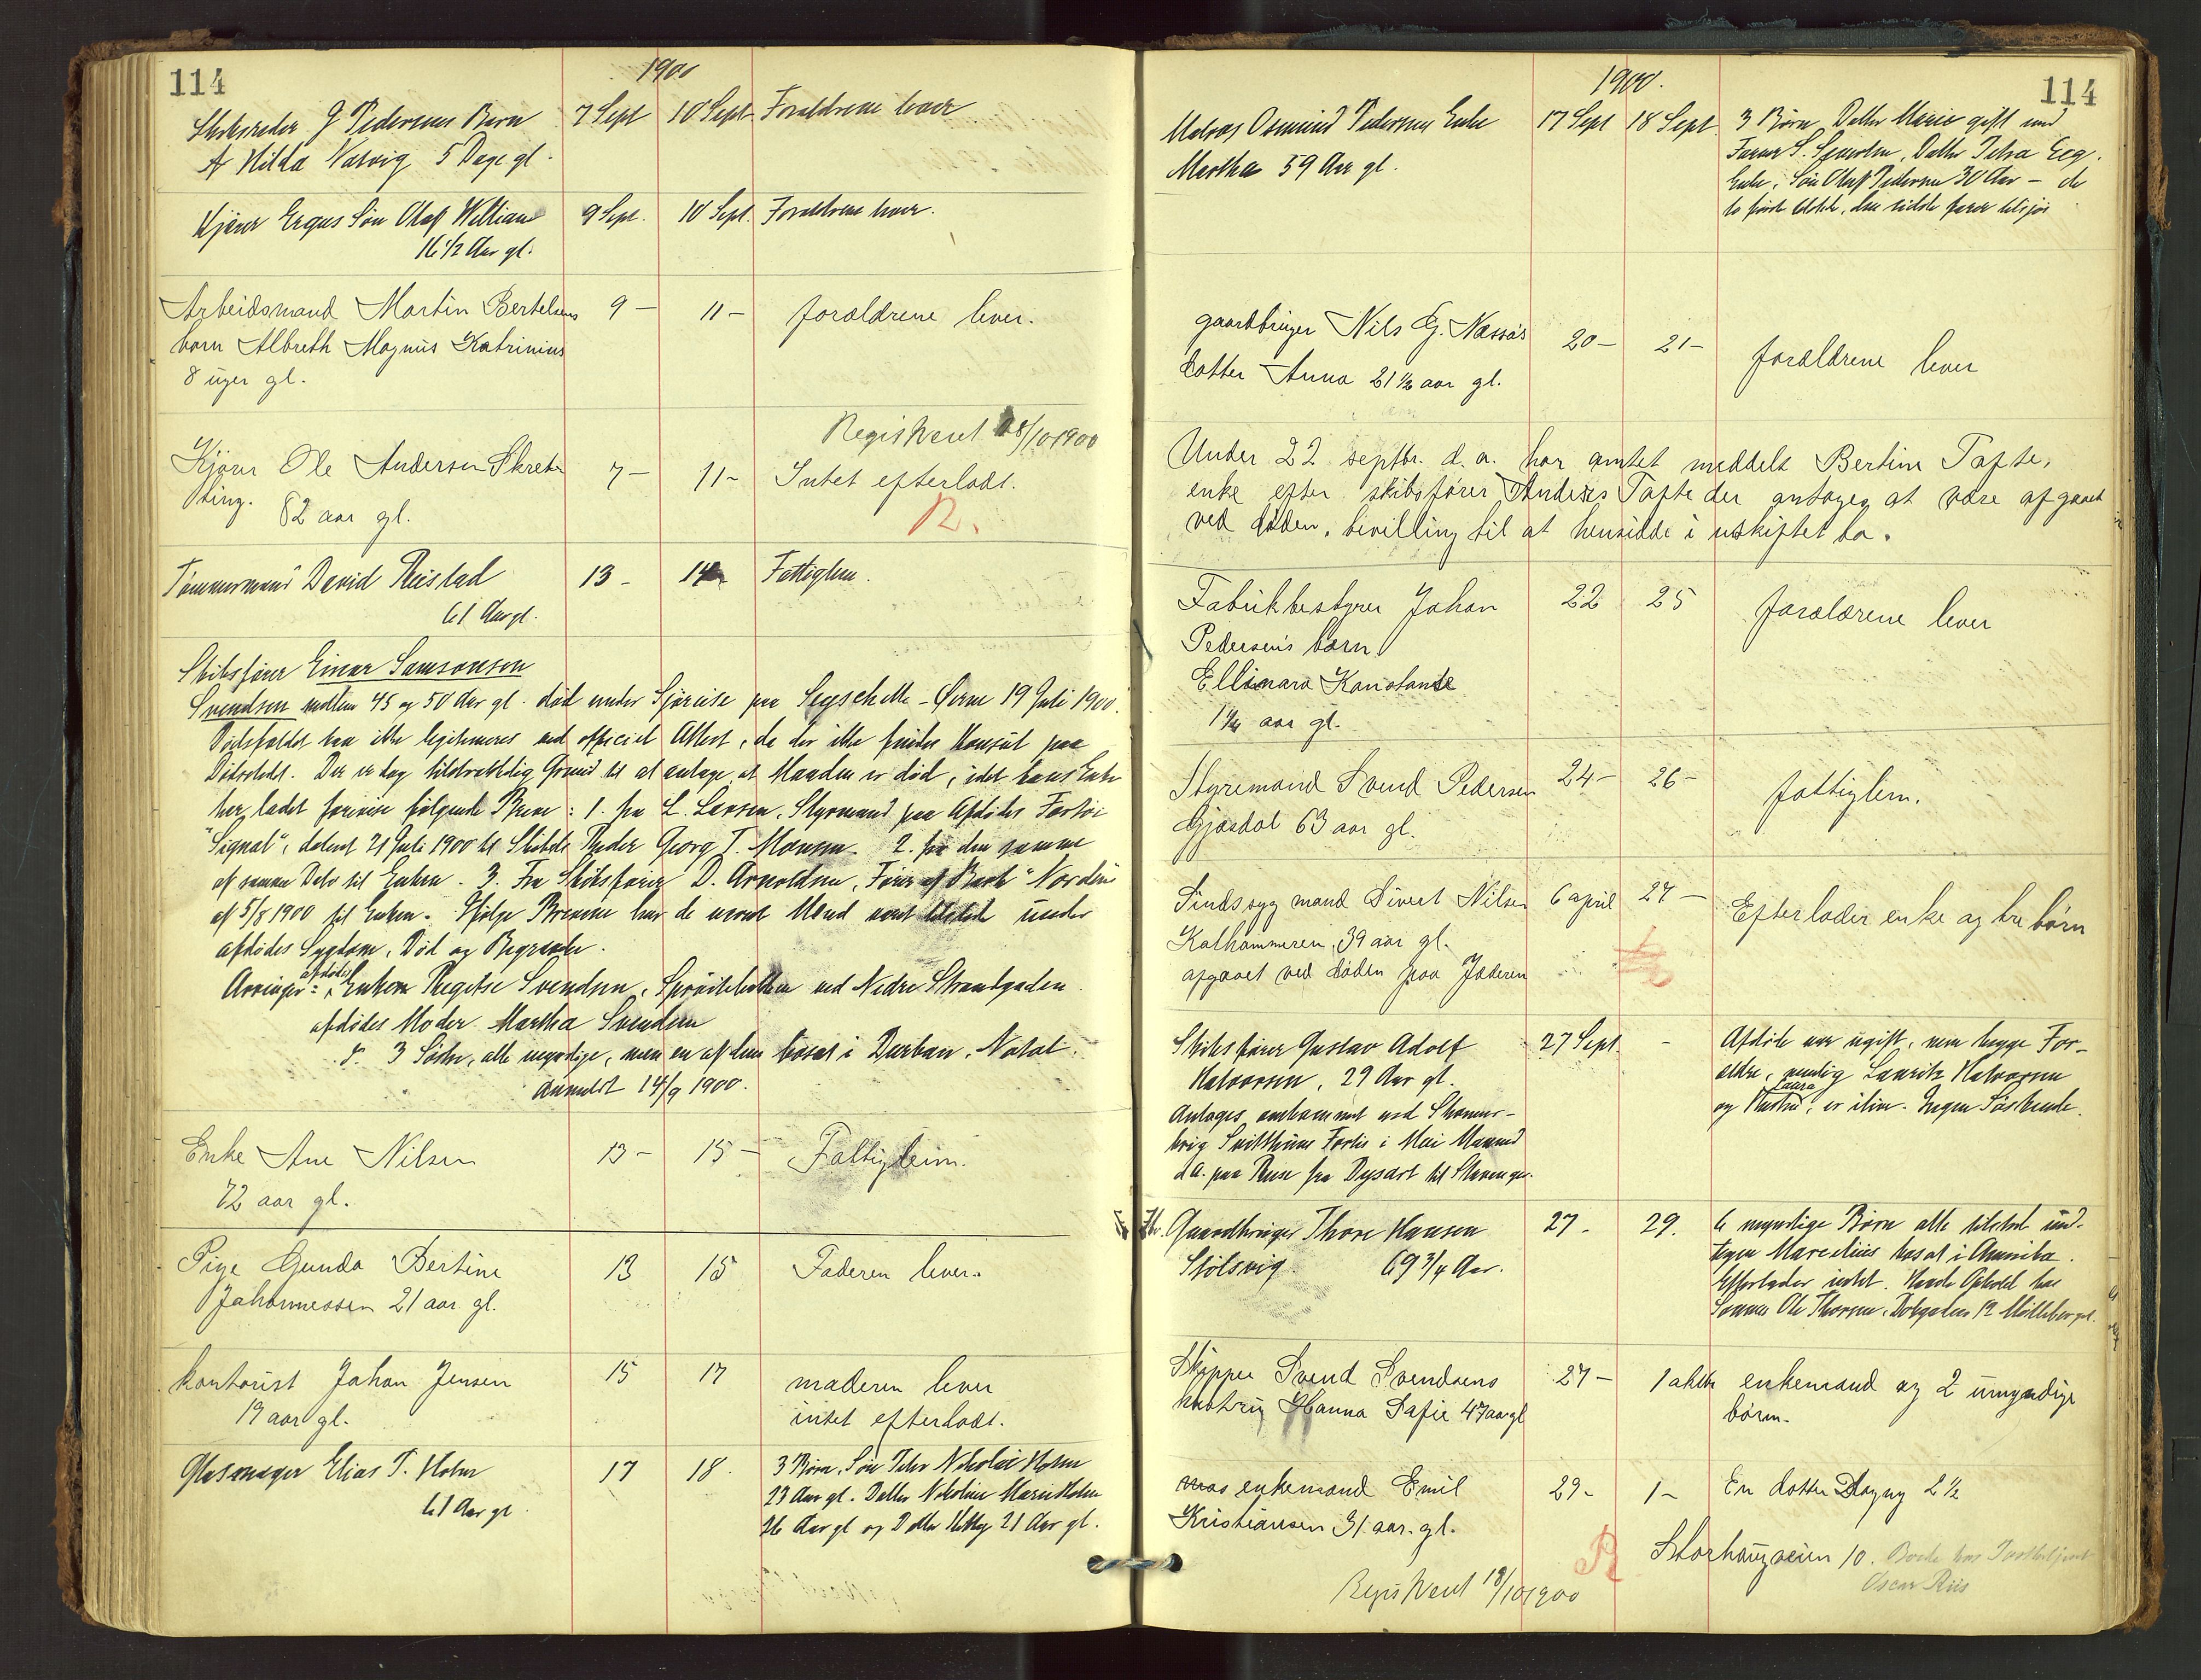 114
1900
Skibsreder G Pedersens Barn 7 Sept 10 Sept Forældrene lever
Af Hilda Natvig 5 Dage gl.
Kjører Ergus Søn Olaf William 9 Sept. 10 Sept. Forældrene lever.
16 1/2 Aar gl.
Arbeidsmand Martin Bertelsens 9 – 11 – forældrene lever.
barn Albreth Magnus Katrinius
8 uger gl.
Registreret 18/10 1900
Kjører Ole Andersen Skret- 7 – 11 – Intet efterladt.
ting. 82 aar gl. R.
Tømmermand David Riistad 13 – 14 – Fattiglem.
61 Aar gl.
Skibsfører Einar Samsonsen
Svendsen mellem 45 og 50 Aar gl. død under Sjøreise paa Øerne 19 Juli 1900.
Dødsfaldet kan ikke legitimeres ved officiel Attest, da der ikke findes Konsul paa
Dødsstedet. Der er dog tilstrækkelig Grund til at antage, at Manden er død, idet hans Enke
her ladet forevise følgende Breve: 1. fra L. Larsen, Styrmand paa Afdødes Fartøi
"Signal", dateret 21 Juli 1900 til Skibets Reder Georg T. Monsen. 2. fra den samme
af samme Dato til Enken. 3. Fra Skibsfører D. Arnoldsen, Fører af Bark "Norden"
af 5/8 1900 til Enken. Ifølge Brevene har de nævnte Mænd været tilstede under
afdødes Sygdom, Død og Begravelse.
Arvinger: afdødes Enken Regitse Svendsen, ved Nedre Strandgaden.
afdødes Moder Martha Svendsen
3 Sødre, alle myndige, men en af dem bosat i Durban, Natal.
Anmeldt 14/9 1900.
Enke Ane Nilsen 13 – 15 – Fattiglem.
72 aar gl.
Pige Gunda Bertine 13 15 Faderen lever.
Johannessen 21 aar gl.
kontorist Johan Jensen 15 17 moderen lever
19 aar gl. intet efterladt.
Glasmager Elias T. Holm 17 18. 3 Børn, Søn Peder Nikolai Holm
61 Aar gl. 23 Aar gl. Datter Nikoline Marie Holm
26 Aar gl og Datter Hetty 21 Aar gl.
114
1900.
Matros Osmund Pedersens Enke 17 Sept 18 Sept 3 Børn Datter Marie gift med
Martha 59 Aar gl. Farver S. Datter Petra Eeg.
Enke, Søn Olaf Pedersen 30 Aar – de
to første den sidste farer tilsjøs
gaardbruger Nils G. Næssøs 20 – 21 – forældrene lever
datter Anna 21 1/2 aar gl.
Under 22 septbr. d.a. har amtet meddelt Bertine Tafte,
enke efter skibsfører Anders Tafte der antages at være afgaaet
ved døden, bevilling til at hensidde i uskiftet bo.
Fabrikbestyrer Johan 22 25 forældrene lever
Pedersens barn
Ellinara Konstanse
1 1/4 aar gl.
Styremand Svend Pedersen 24 – 26 – fattiglem.
Gjøsdal 63 aar gl.
Sindssyg mand Sivert Nilsen 6 april 27 – Efterlader enke og tre børn
Kalhammeren, 39 aar gl.
afgaaet ved døden paa Jæderen
Skibsfører Gustav Adolf 27 Sept. – Afdøde var ugift, men begge For-
Halvorsen, 29 Aar gl. ældre, nemlig Lauritz Halvorsen
Antages omkommet med Skonner- og Hustru Laura, er ilive. Ingen Søskende.
brig Svithuns Forlis i Mai Maaned
d.a. paa Reise fra Dysart til Stavanger.
Gaardbruger Thore Hansen 27 – 29. 6 myndige Børn alle tilstede und-
Stølsvig 69 3/4 Aar. tagen Marcelius bosat i Amerika.
Efterlader intet. Havde Ophold hos
Sønnen Ole Thorsen,
Skipper Svend Svendsens 27 – 1 oktbr enkemand og 2 umyndige
hustru Hanna Sofie 47 aar gl børn.
enkemand Emil 29 – 1 – En datter Dagny 2 1/2
Kristiansen 31 aar. gl.
R Storhaugveien 10.
Oscar Riis
Registreret 18/10 1900